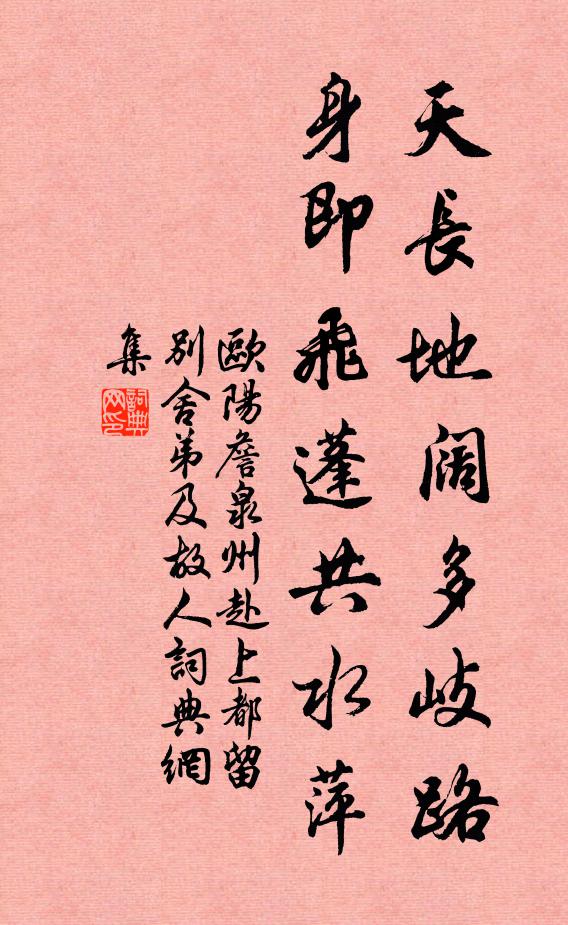 天長地闊多歧路
身即飛蓬共水萍
歐陽詹泉州赴上都留
別舍弟及故人詞典網
集
詞典
网印